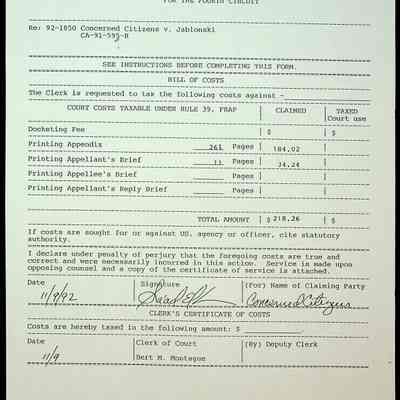 FOR THE FOURTH CIRCUIT
Re: 92-1850 Concerned Citizens v. Jablonski
CA-91-595-R
SEE INSTRUCTIONS BEFORE COMPLETING THIS FORM.
BILL OF COSTS
The Clerk is requested to tax the following costs against -
COURT COSTS TAXABLE UNDER RULE 39, FRAP | CLAIMED | TAXED
Court use
Docketing Fee | $ | $
Printing Appendix 261 Pages | 184.02
Printing Appellant's Brief 11 Pages | 34.24
Printing Appellee's Brief Pages
Printing Appellant's Reply Brief Pages
TOTAL AMOUNT | $ 218.26 | $
If costs are sought for or against US, agency or officer, cite statutory
authority.
I declare under penalty of perjury that the foregoing costs are true and
correct and were necessarily incurred in this action. Service is made upon
opposing counsel and a copy of the certificate of service is attached.
Date | Signature | (For) Name of Claiming Party
11/9/92 Concerned Citizens
CLERK'S CERTIFICATE OF COSTS
Costs are hereby taxed in the following amount: $
Date | Clerk of Court | (By) Deputy Clerk
11/9 Bert M. Montague